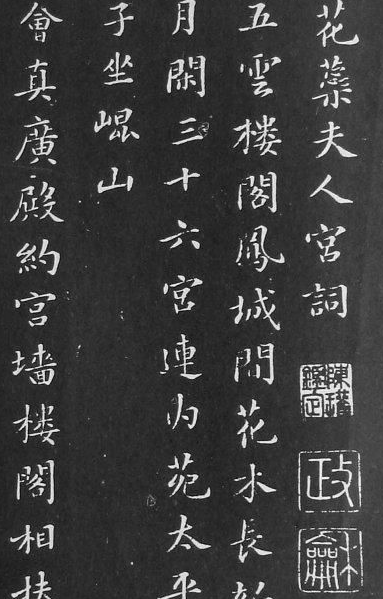 花蘂夫人宮詞
政
龢
五雲楼閣鳳城間花木長
月閑三十六宮連内苑太平
子坐崐山
會真廣殿約宮墻楼閣相扶